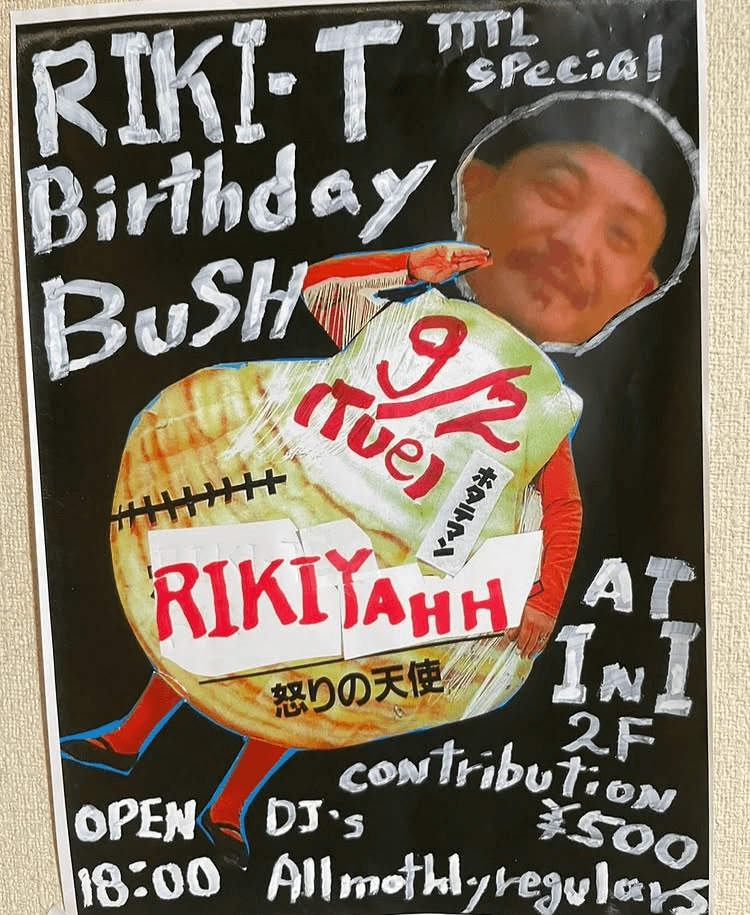 RIKI-T
TTTL
special
Birthday
BuSH
9/2
(Tue)
ホタテマン
RIKIYAHH
怒りの天使
AT
InI
2F
contribution
¥500
OPEN
18:00
DJ's
All mothlyregulars